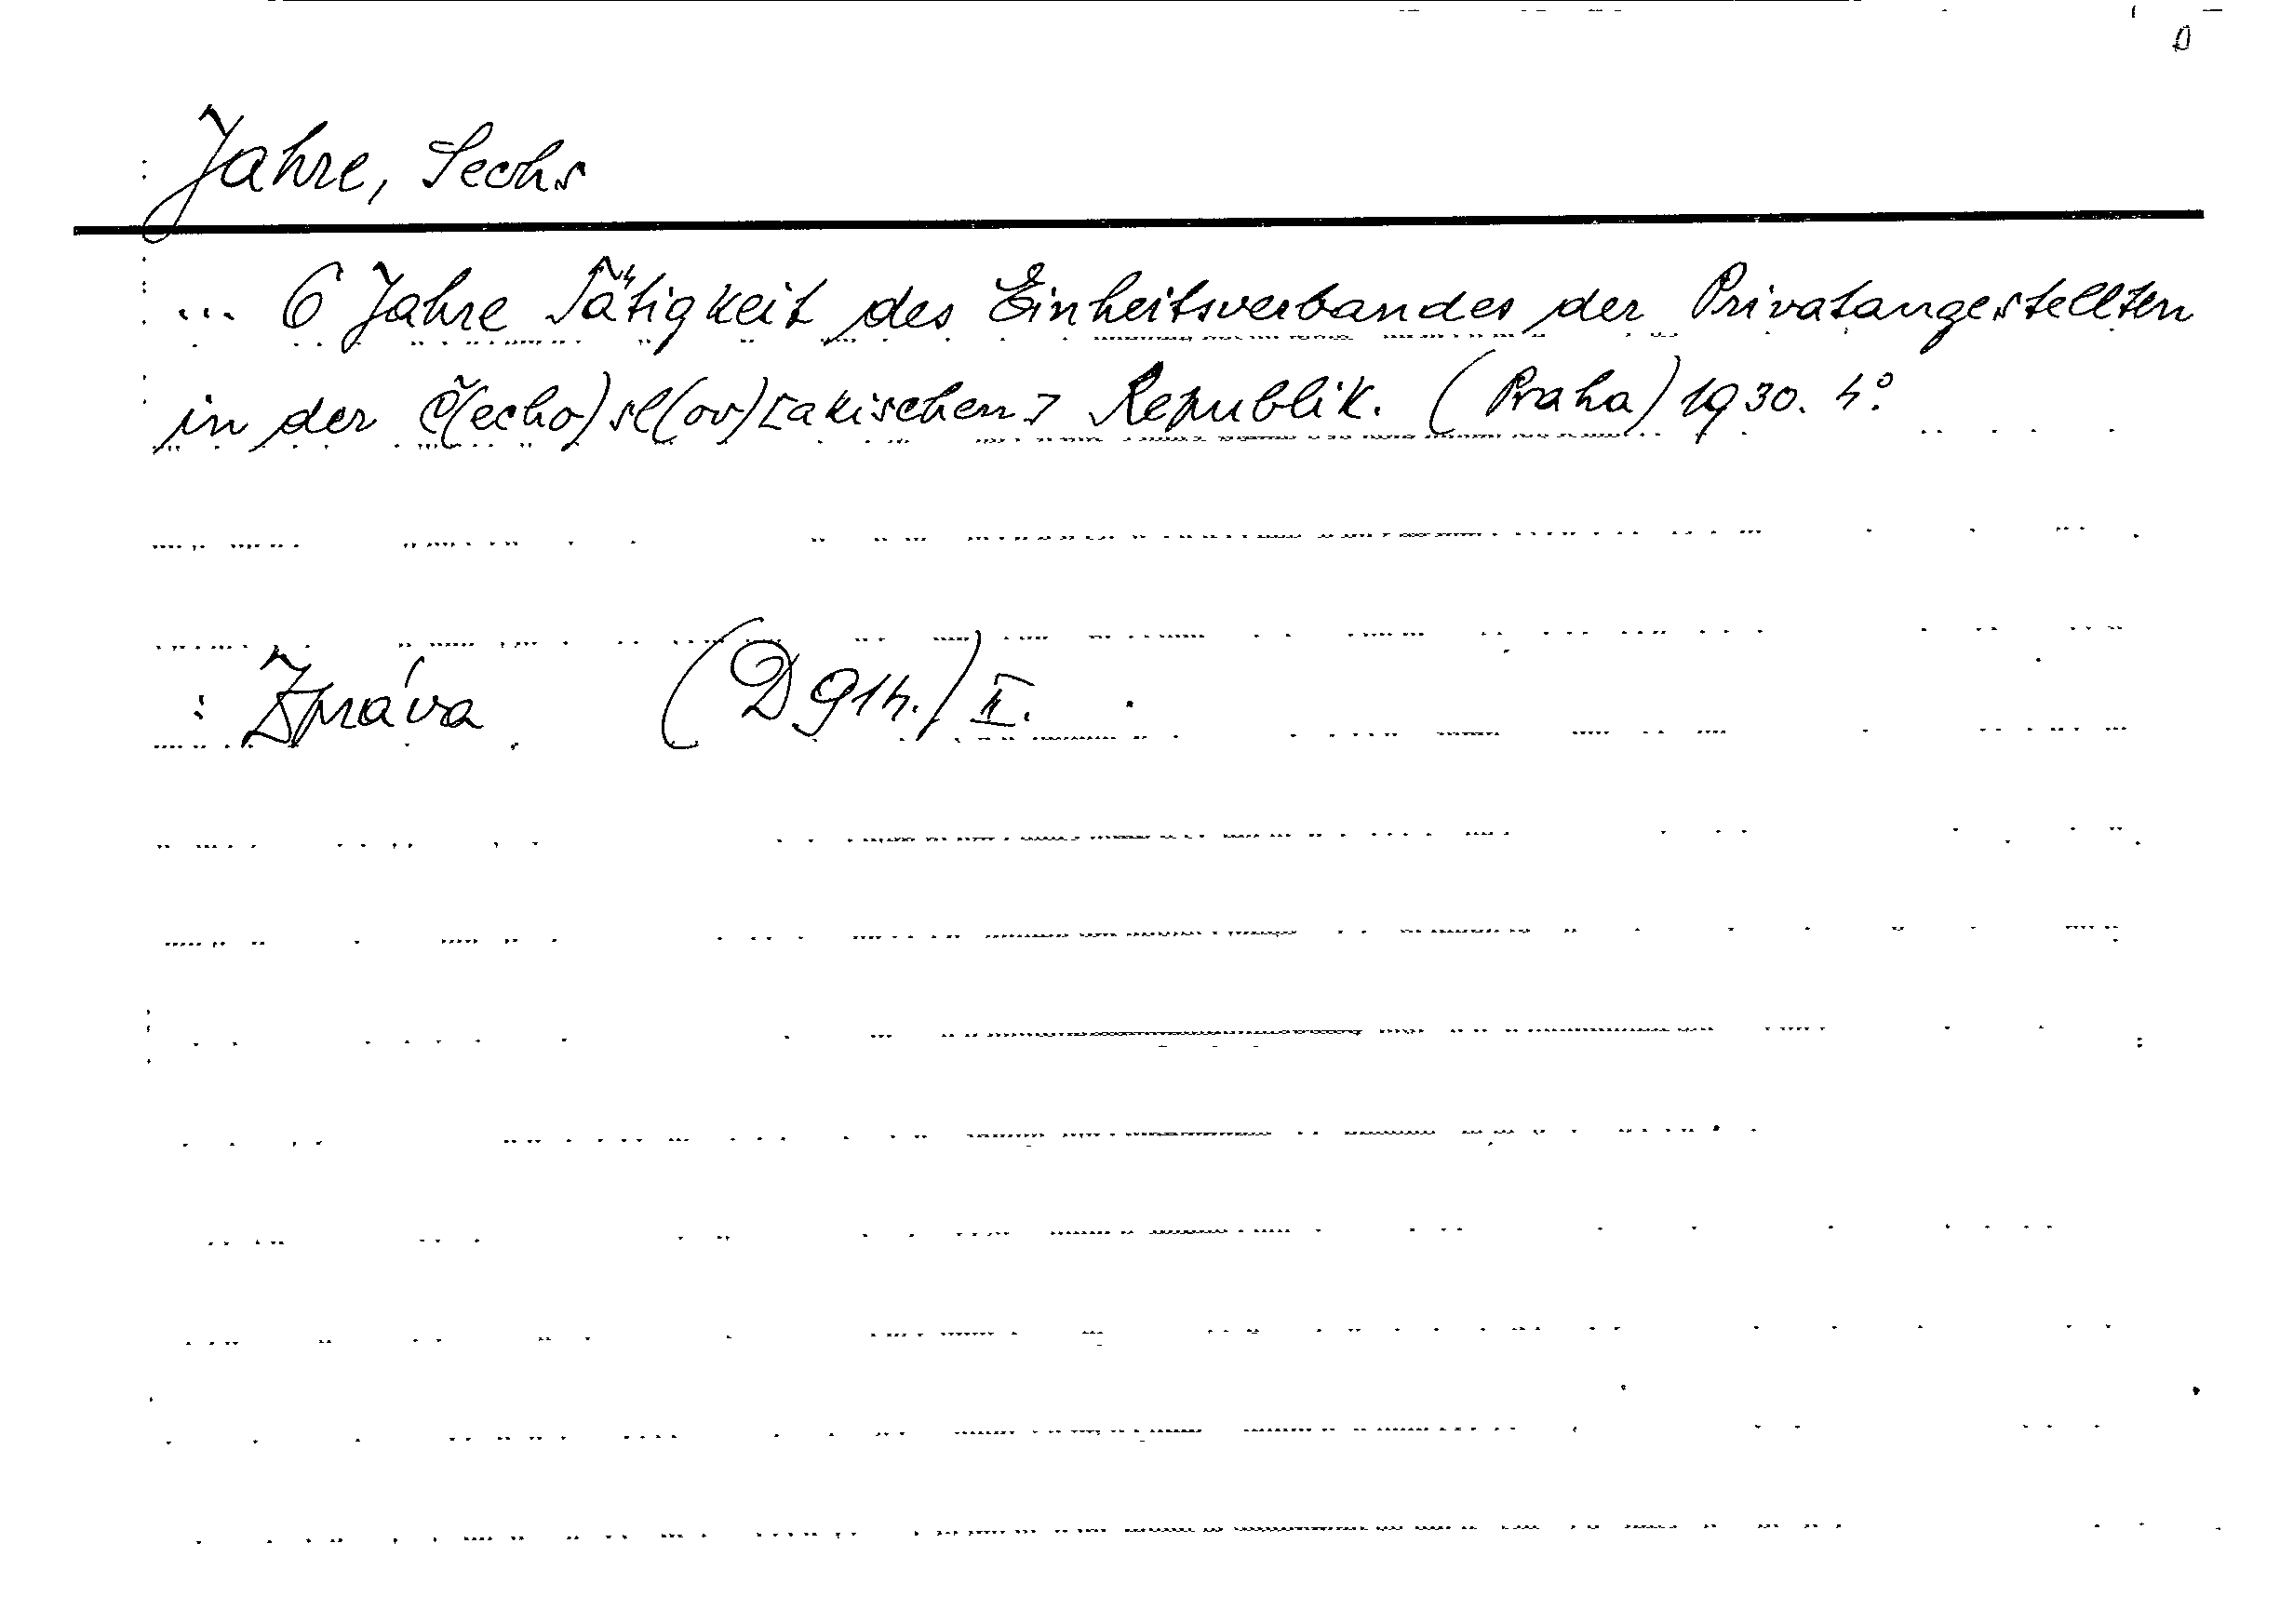 Jahre, Sechs
... 6 Jahre Tätigkeit des Einheitsverbandes der Privatangestellten
in der Č(echo)sl(ov)[akischen] Republik. (Praha) 1930. 4°.
: Zpráva (D 914.) II.